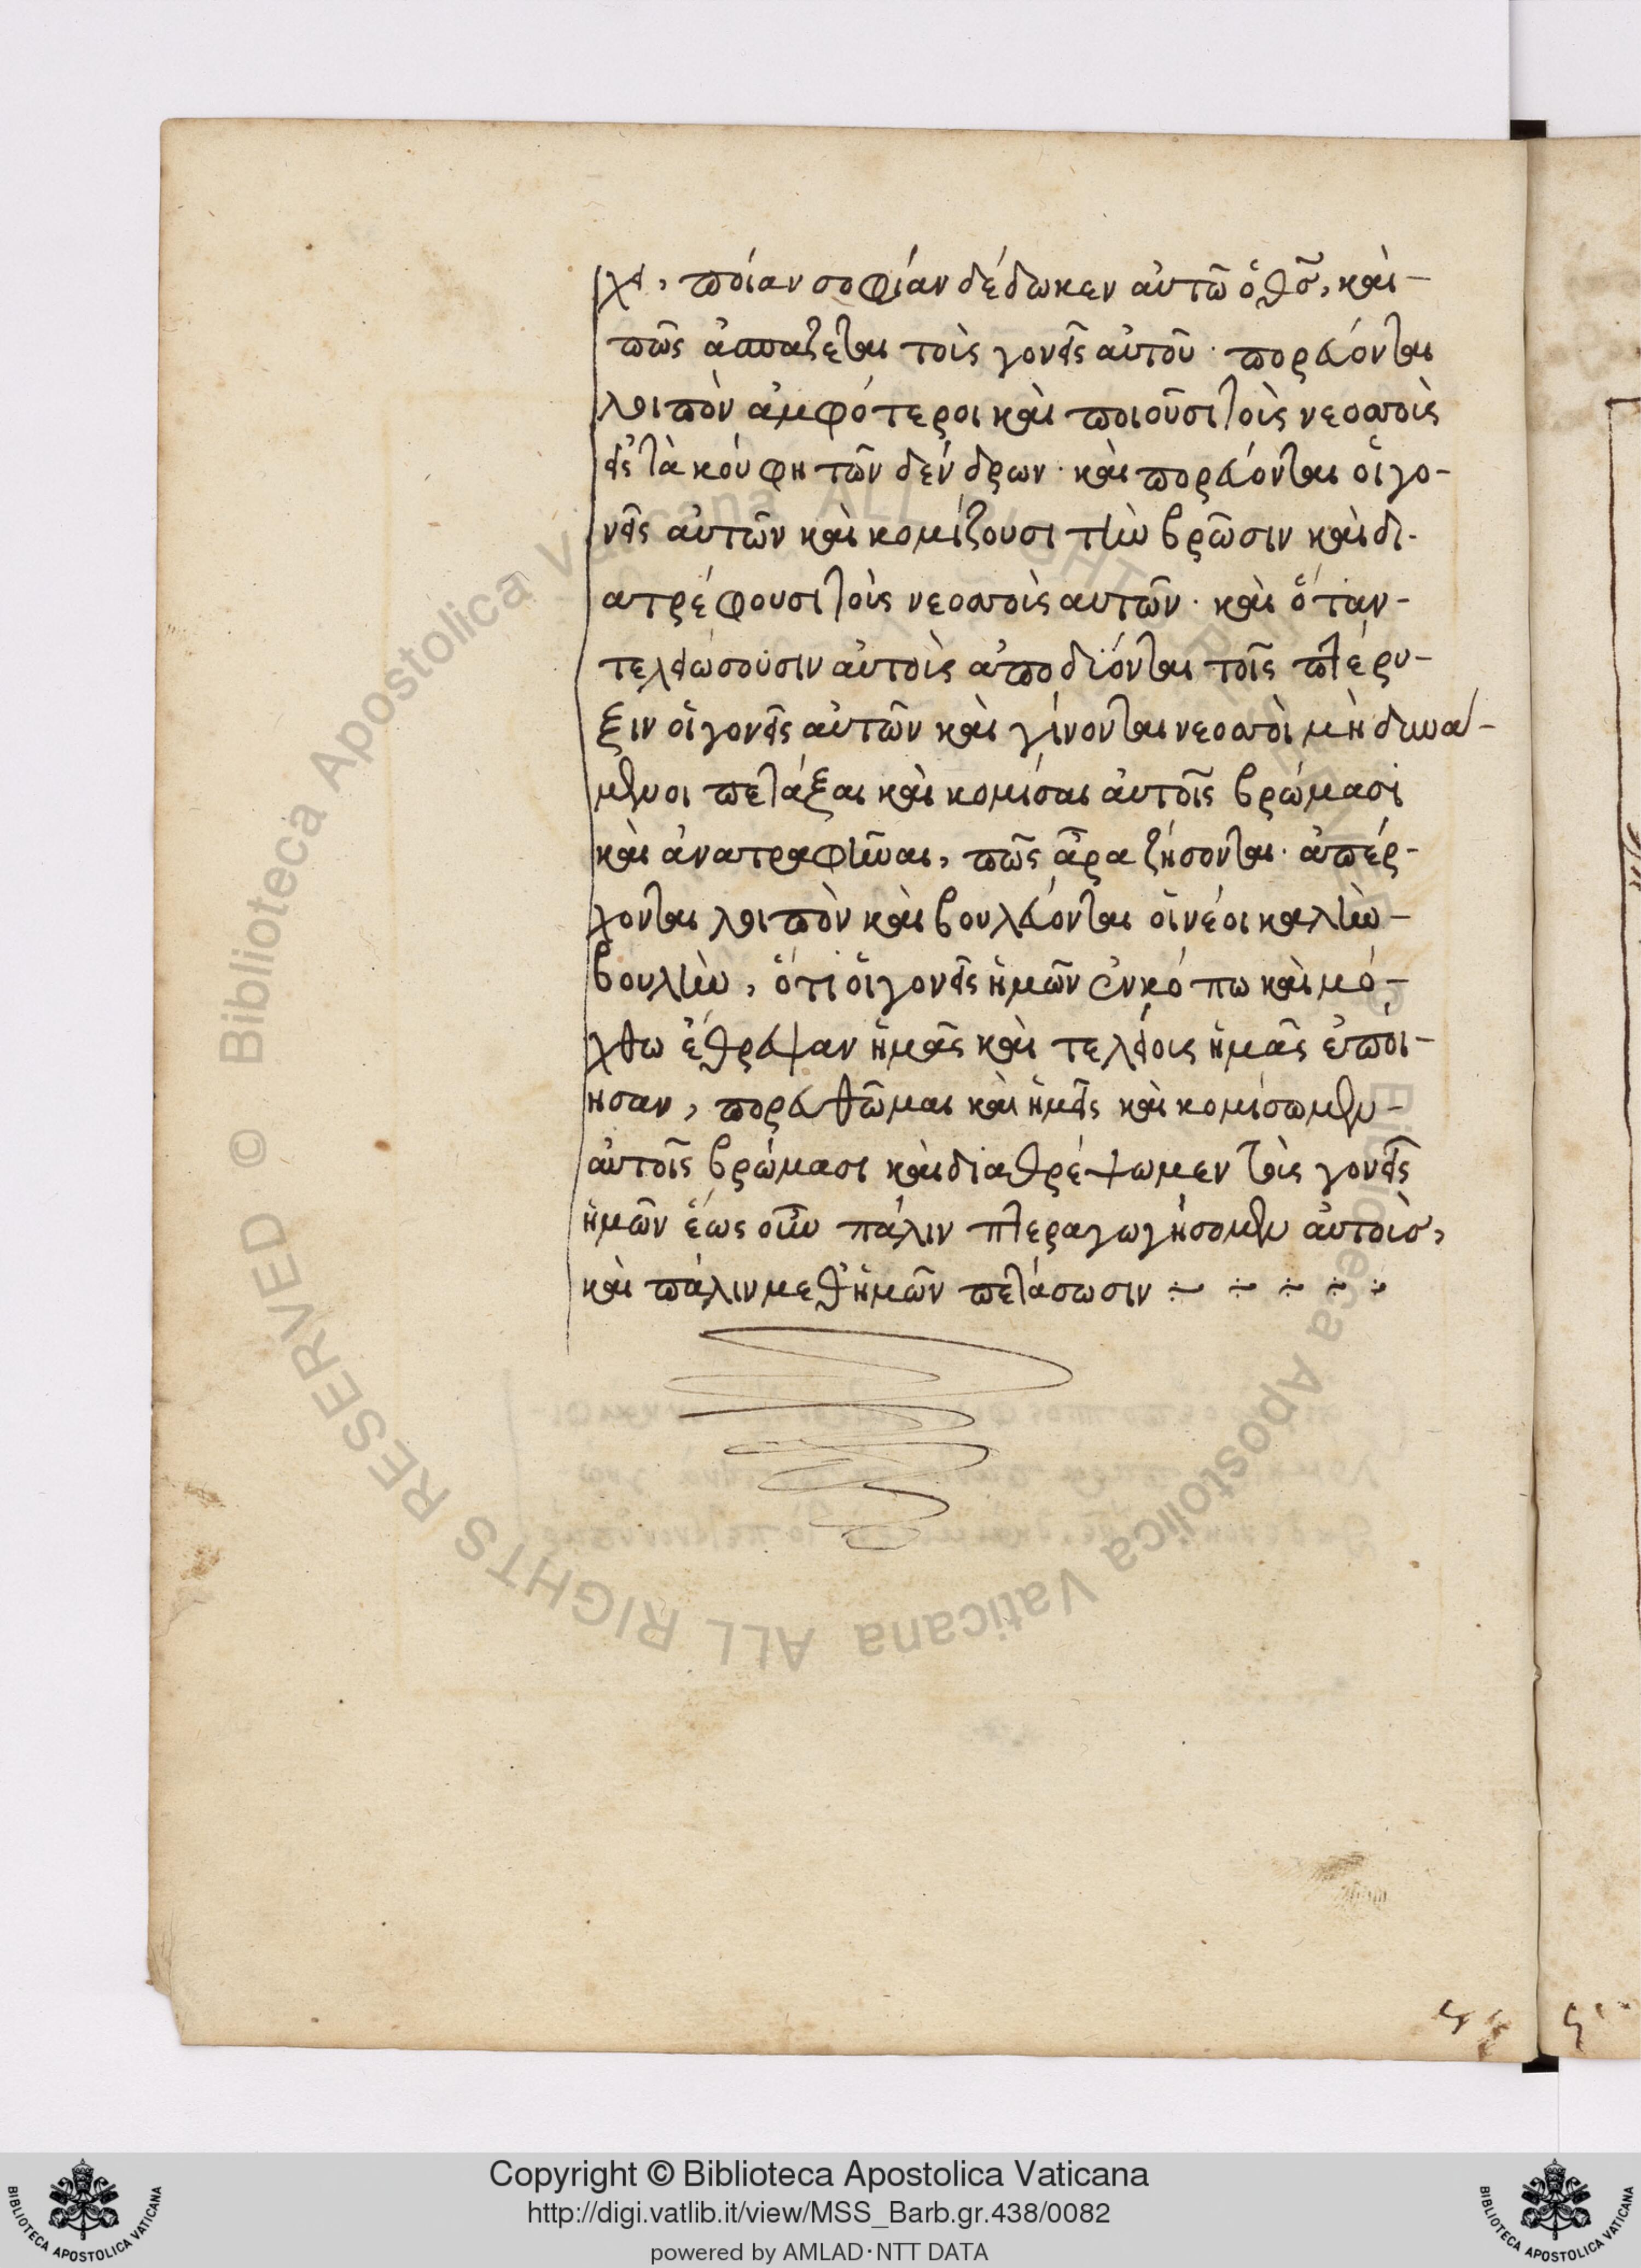 χει, ποίαν σοφίαν δέδωκεν αὐτῶ ὁ θς̃, καὶ-
πῶς ἀσπάζεται τοὺς γονεῖς αὐτοῦ · πορεύονται
λοιπὸν ἀμφότεροι καὶ ποιοῦσι τοὺς νεοσσοὺς
εἰς τὰ κούφη τῶν δένδρων · καὶ πορεύονται οἱ γο-
νεῖς αὐτῶν καὶ κομίζουσι τὴν βρῶσιν καὶ δι-
ατρέφουσι τοὺς νεοσσοὺς αυτῶν · καὶ ὅταν-
τελειώσουσιν αὐτοὺς ἀποδύονται τοῖς πτέρυ-
ξιν οἱ γονεῖς αὐτῶν καὶ γίνονται νεοσσοὶ μὴ δυνά-
μενοι πετάξαι καὶ κομίσαι αὐτοῖς βρώμασι
καὶ ἀνατραφῆναι, πῶς ἆρα ζήσονται · ἀπέρ-
χονται λοιπὸν καὶ βουλεύονται οἱ νέοι καλὴν-
βουλὴν, ὅτι οἱ γονεῖς ἡμῶν ἐν κόπω καὶ μό-
χθω ἔθρεψαν ἡμᾶς καὶ τελείους ἡμᾶς ἐποί-
ησαν, πορευθῶμαι καὶ ἡμεῖς καὶ κομίσωμεν-
αὐτοῖς βρώμασι καὶ διαθρέψωμεν τοὺς γονεῖς
ἡμῶν ἕως οὖν πάλιν πτεραγωγήσομεν αὐτοὺς,
καὶ πάλιν μεθ ἡμῶν πετάσωσιν ÷ ÷ ÷ ÷ ÷
Biblioteca Apostolica Vaticana ALL RIGHTS RESERVED ©
Copyright © Biblioteca Apostolica Vaticana
http://digi.vatlib.it/view/MSS_Barb.gr.438/0082
powered by AMLAD·NTT DATA
BIBLIOTECA APOSTOLICA VATICANA
BIBLIOTECA APOSTOLICA VATICANA